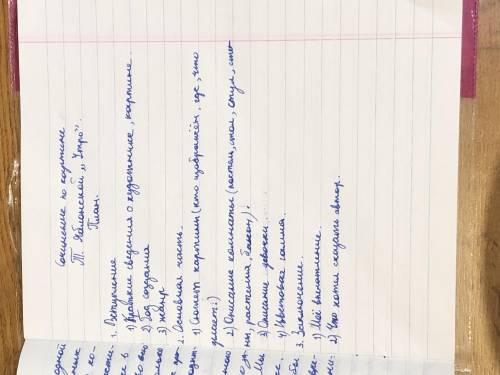 Сочинение по картине
Т. Яблонской "Утро".
План.
1. Вступление
1) Краткие сведения о художнике, картине.
2) Год создания
3) жанр
2. Основная часть.
1) Сюжет картины (кто изображён, где, что
делает?)
2) Описание комнаты (потолок, стол, стул, сте-
ны, растения, балкон)?
3) Описание девочки.
4) Цветовая гамма.
3. Заключение.
1) Моё впечатление.
2) Что хотел сказать автор.